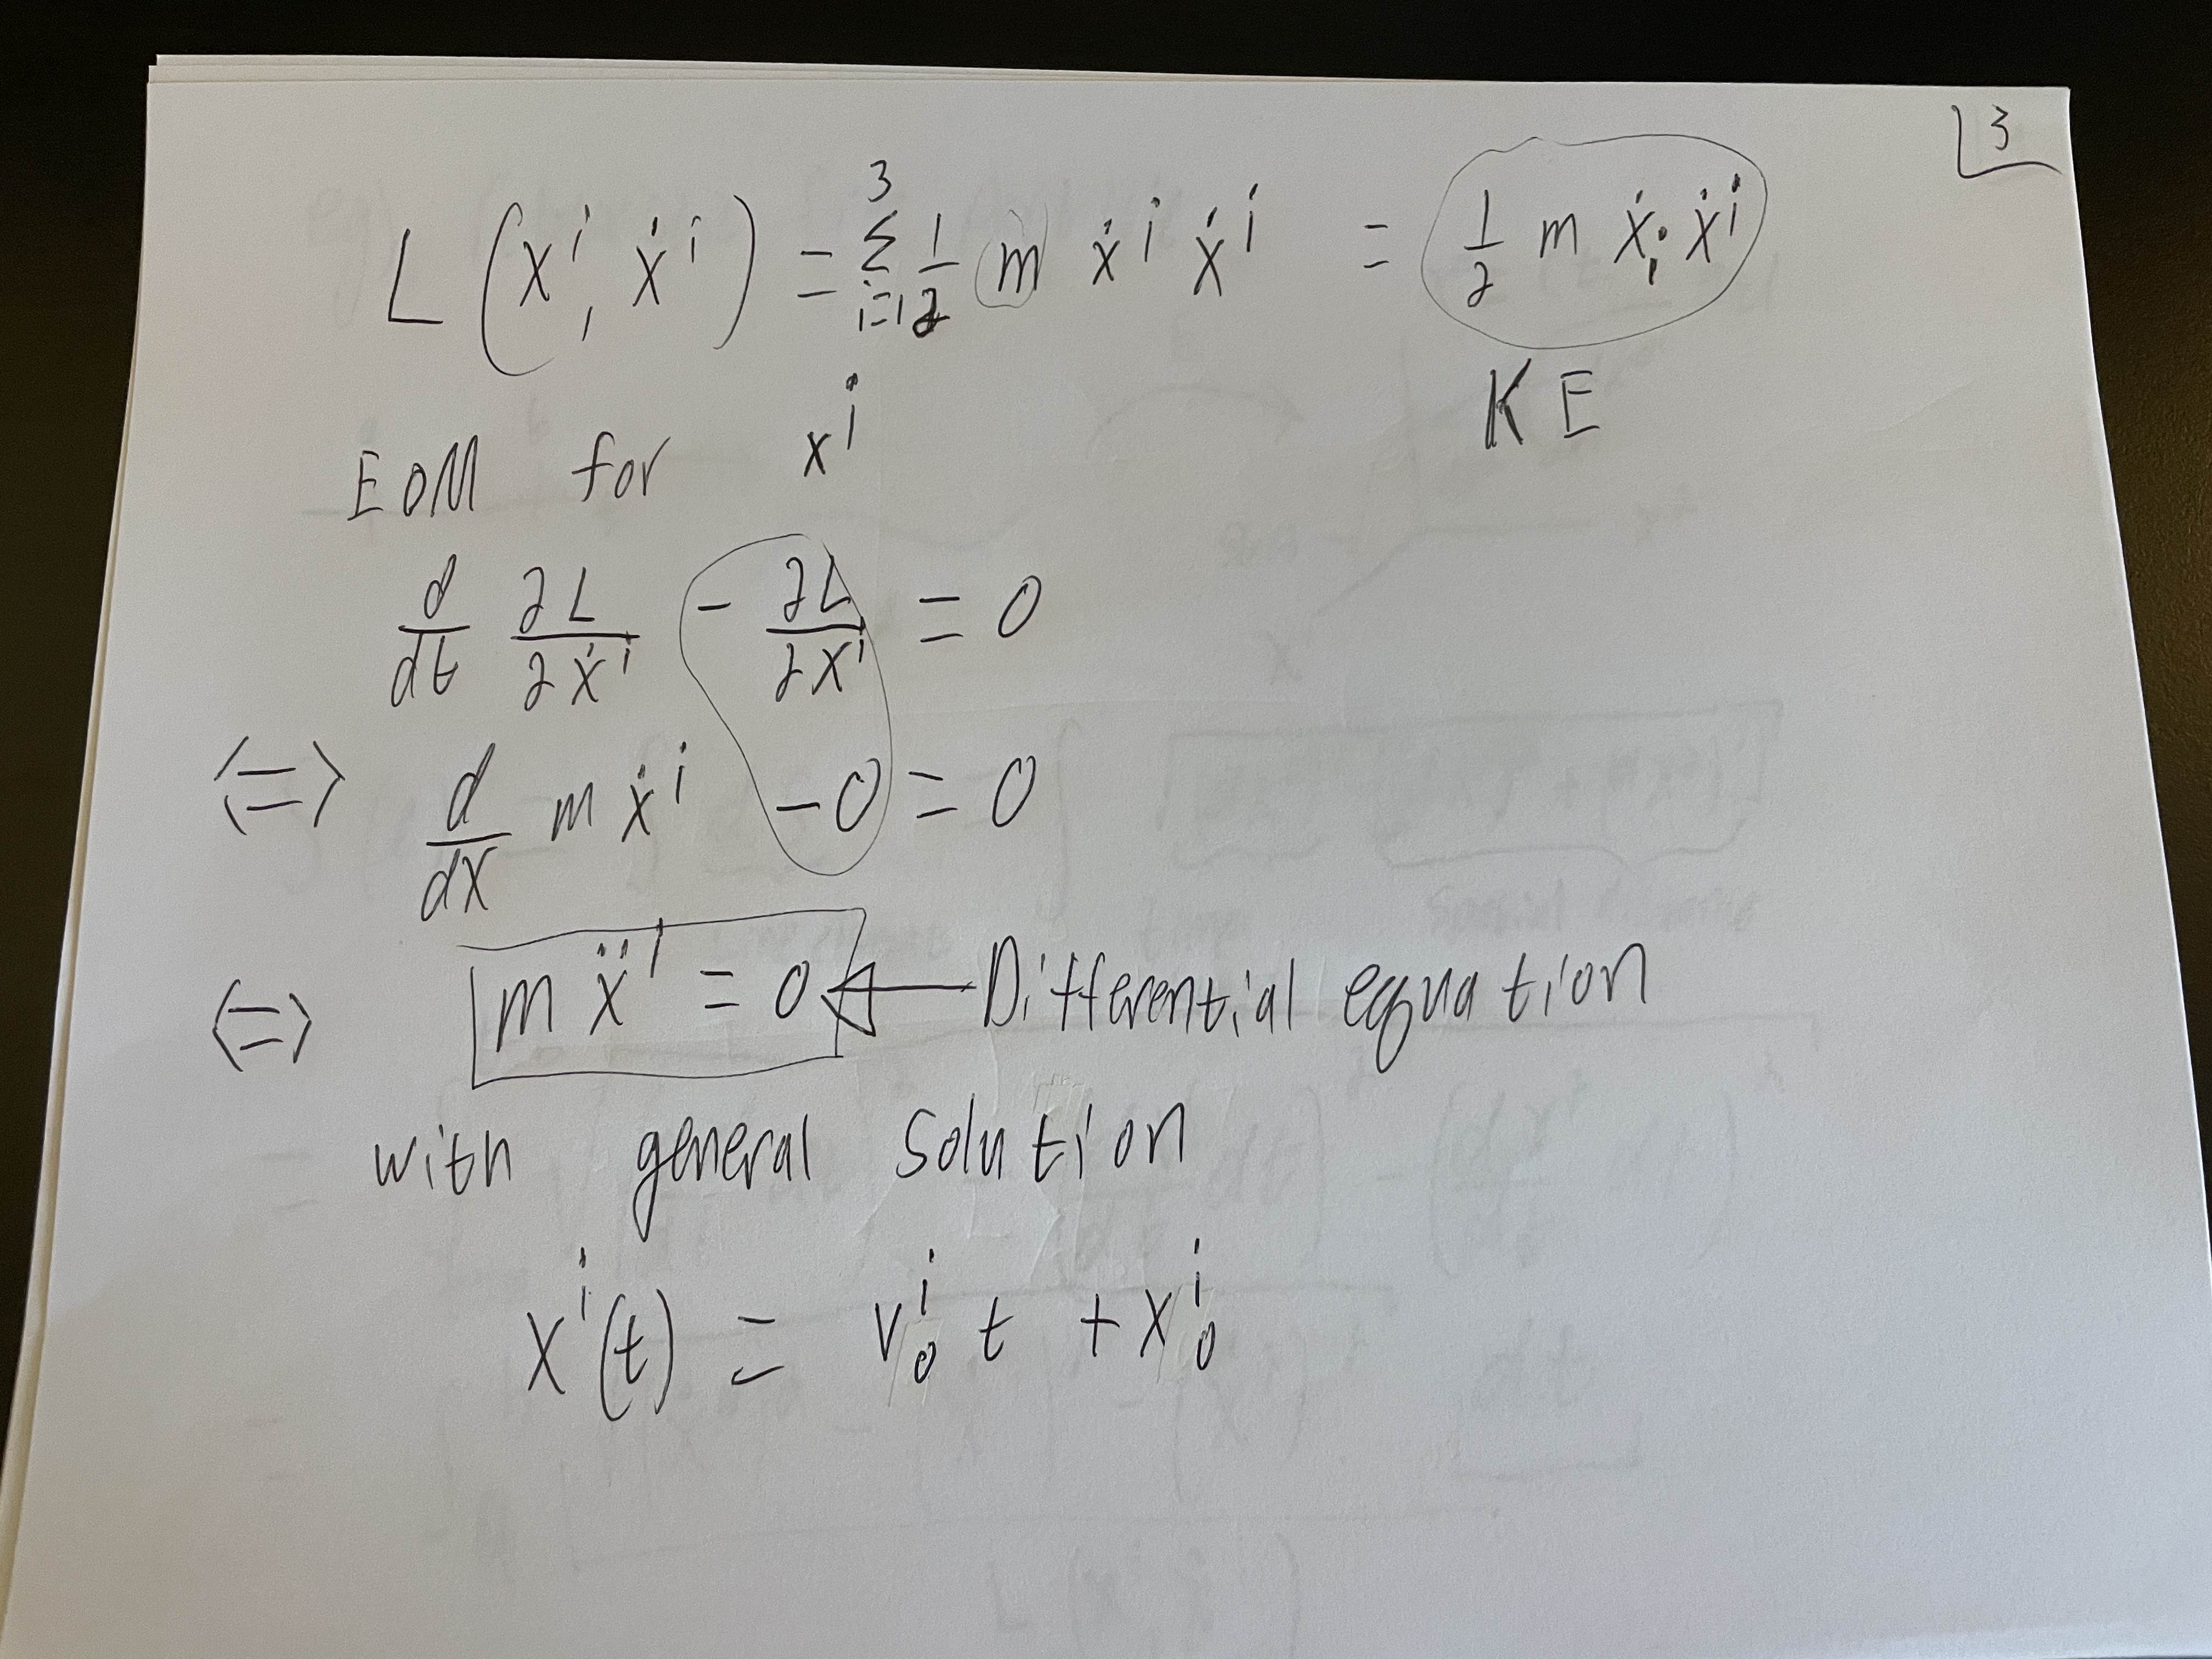 3
L(xⁱ, ẋⁱ) = Σ_{i=1}^{3} 1/2 m ẋⁱ ẋⁱ = 1/2 m ẋᵢ ẋⁱ
KE
EOM for xⁱ
d/dt ∂L/∂ẋⁱ - ∂L/∂xⁱ = 0
<=> d/dx m ẋⁱ - 0 = 0
<=> m ẍⁱ = 0 ← Differential equation
with general solution
xⁱ(t) = v₀ⁱ t + x₀ⁱ